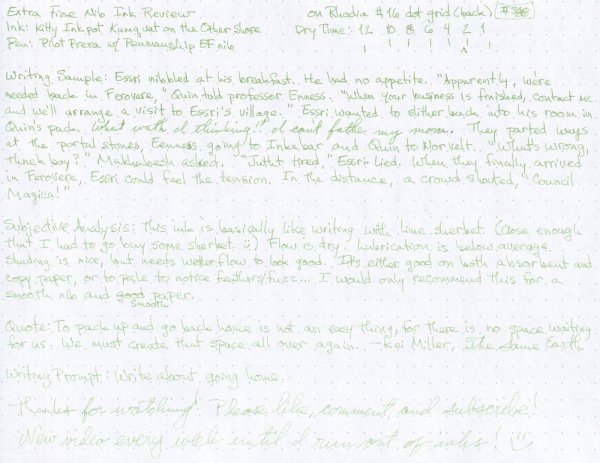 Extra Fine Nib Ink Review on Rhodia #16 dot grid (back)
Ink: Kitty Inkpot Kumquat on the Other Shore Dry Time: 12 10 8 6 4 2 1
Pen: Pilot Prera w/ Penmanship EF nib
Writing Sample: Essri nibbled at his breakfast. He had no appetite. "Apparently, we're
needed back in Ferovere," Quin told professor Enness. "When your business is finished, contact me
and we'll arrange a visit to Essri's village." Essri wanted to slither back into his room in
Quin's pack. What was I thinking!? I can't face my mom. They parted ways
at the portal stones, Enness going to Inkabar and Quin to Norvelt. "What's wrong,
boy?" asked. "Jutht tired," Essri lied. When they finally arrived
in Ferovere, Essri could feel the tension. In the distance, a crowd shouted, "Council
Magica!"
Subjective Analysis: This ink is basically like writing with lime sherbet. (Close enough
that I had to go buy some sherbet. ü) Flow is dry. Lubrication is below average.
Shading is nice, but needs wetter flow to look good. It's either good on both absorbent and
copy paper, or to pale to notice feathers/fuzz... I would only recommend this for a
smooth nib and good paper.
smooth
Quote: To pack up and go back home is not an easy thing, for there is no space waiting
for us. We must create that space all over again. —Kei Miller, The Same Earth
Writing Prompt: Write about going home.
Thanks for watching! Please like, comment, and subscribe!
New video every week until I run out of inks!